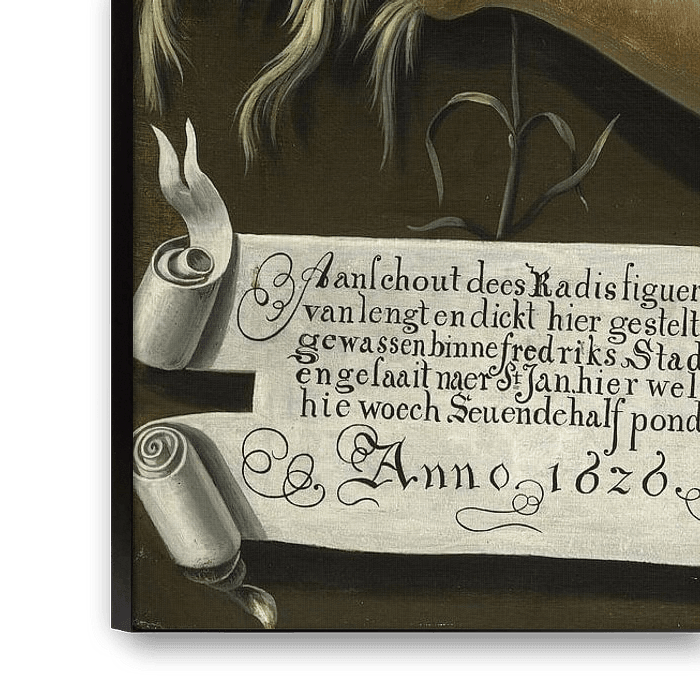 Aanschout dees Radis figuer
van lengt en dickt hier gestelt
gewassen binne fredriks Stad
en gesaait naer St Jan hier wel
hie woech Seuendehalf pond
Anno 1626